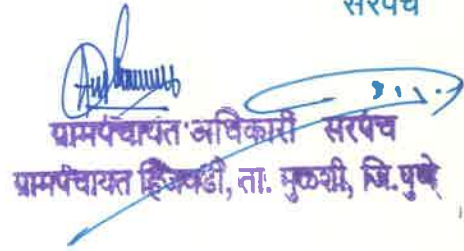 सरपंच
ग्रामपंचायत अधिकारी सरपंच
ग्रामपंचायत हिंजवडी, ता. मुळशी, जि. पुणे